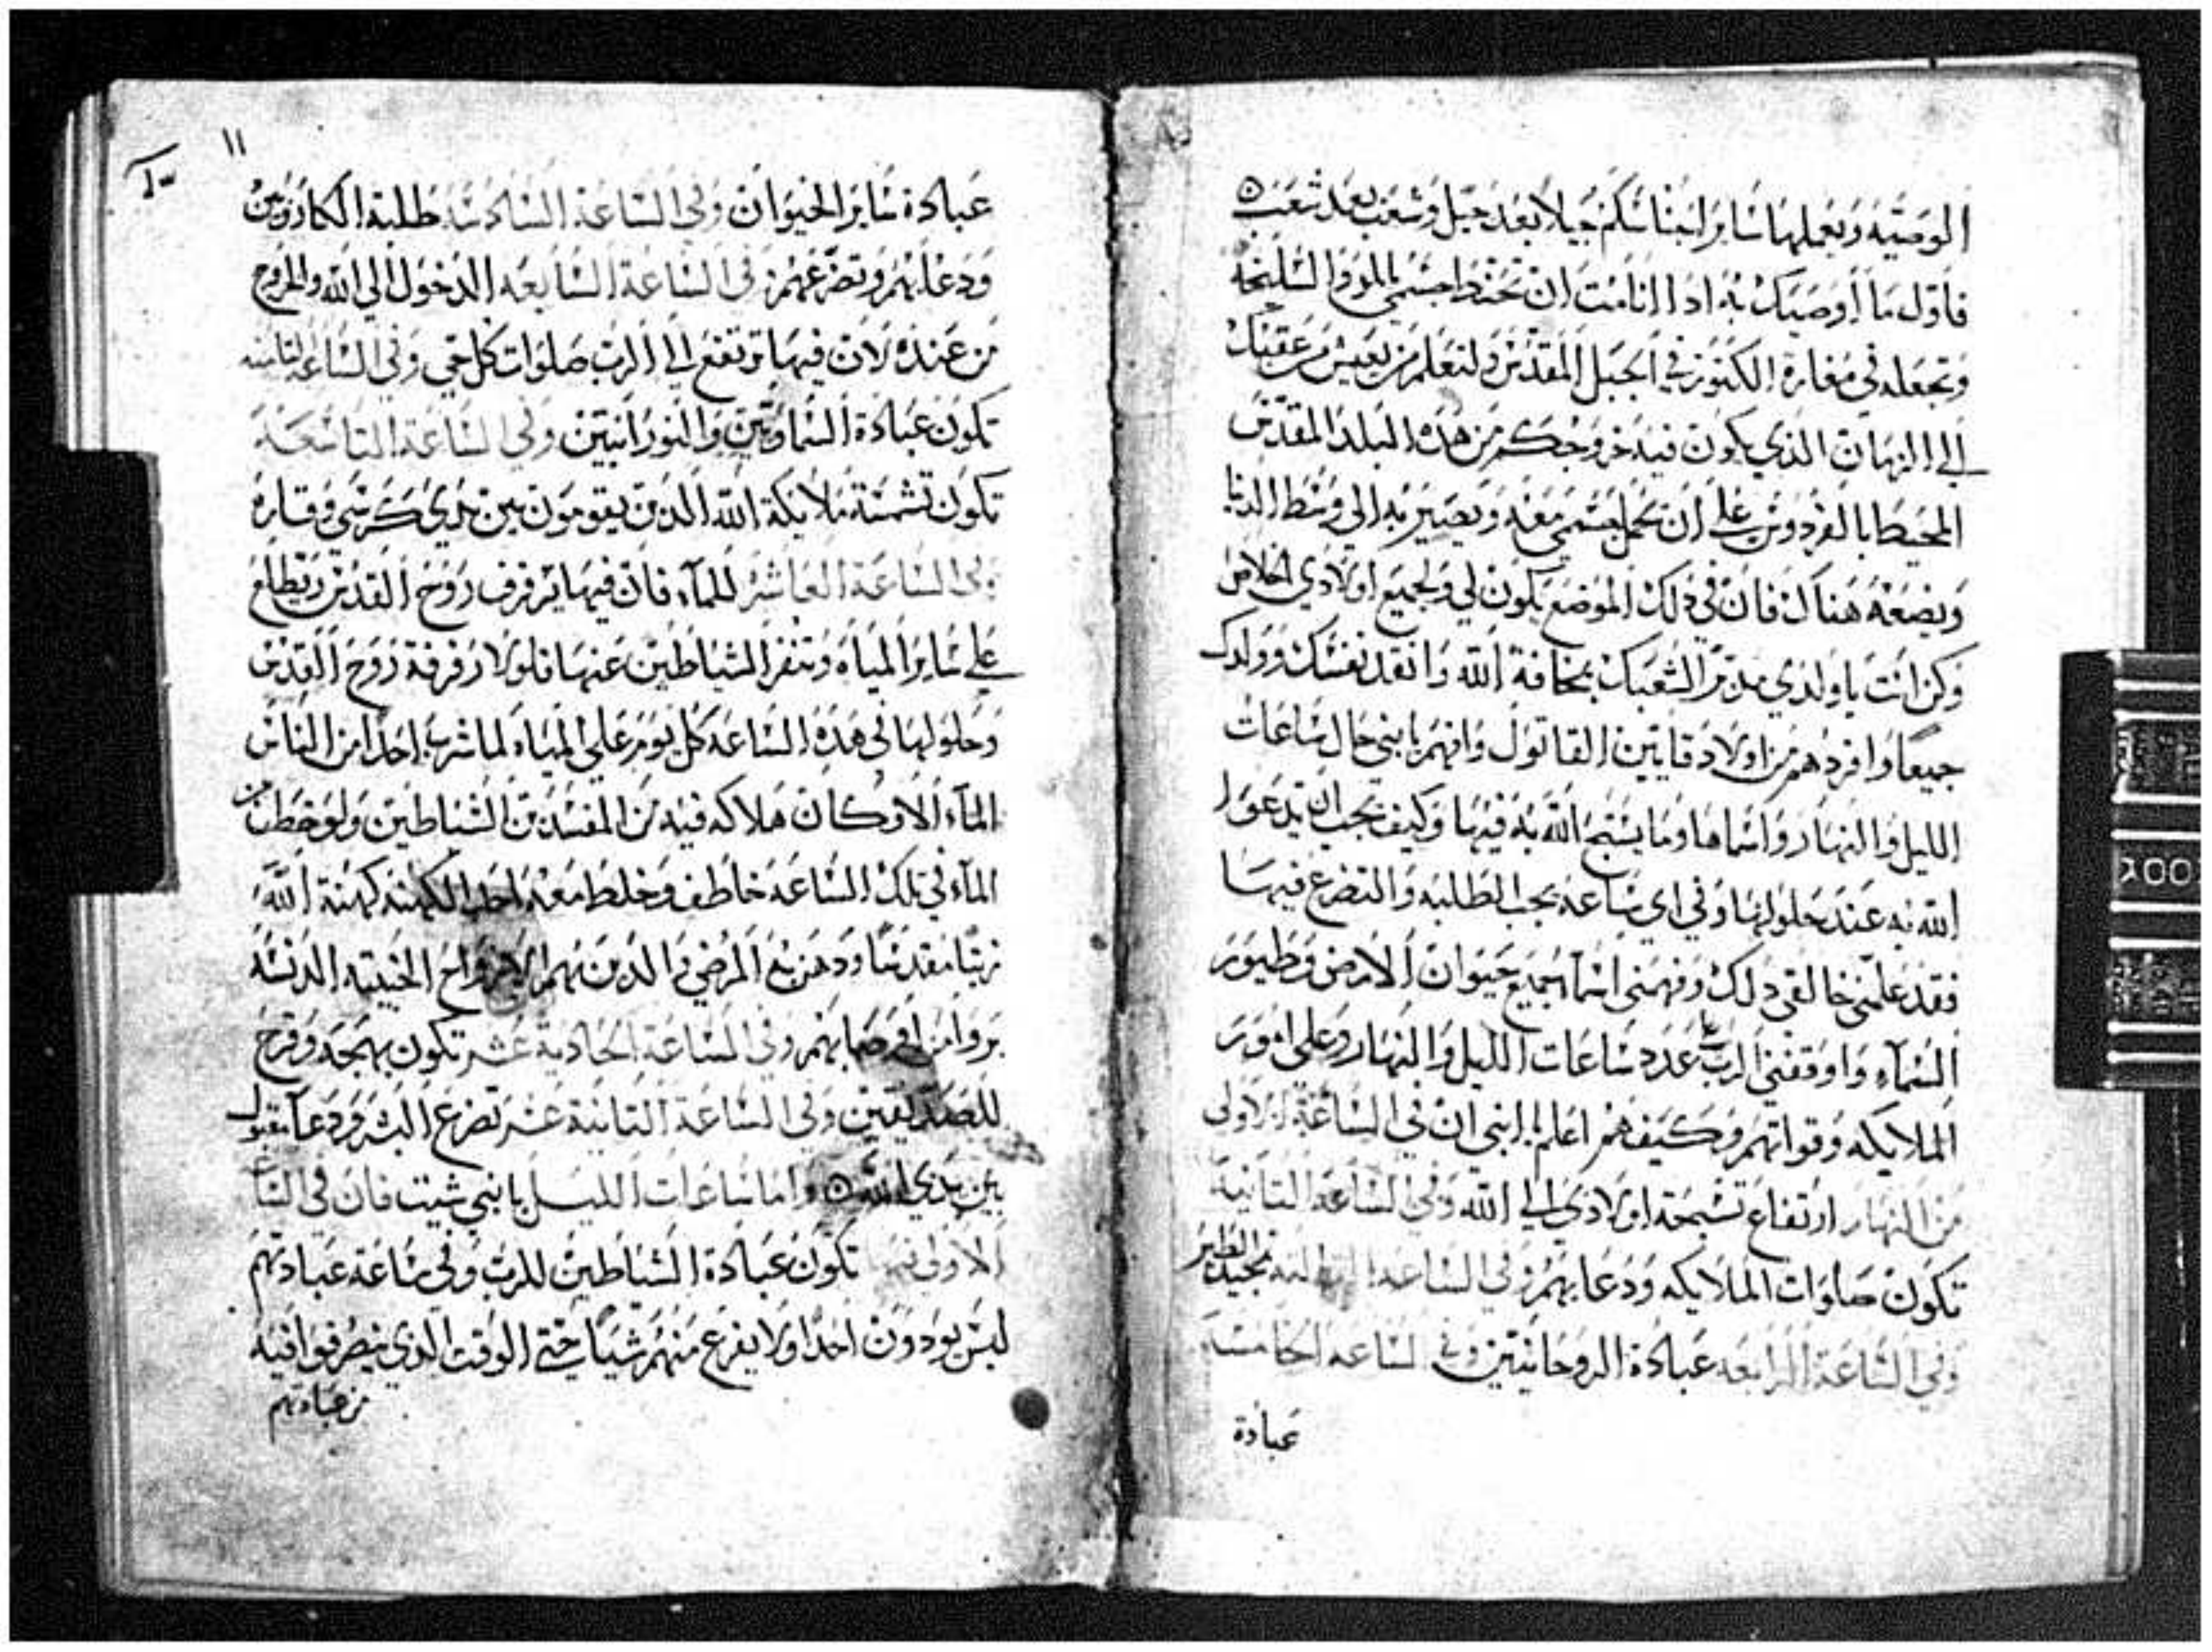 الوصيه ويعملها ساير اجناسكم جيلا بعد جيل وشعب بعد شعب
فاول ما اوصيك به ادا انا مت ان تحنط جسمي بالمر والسليخه
وتجعله في مغارة الكنوز في الجبل المقدس ولتعلم من يعيش من عقبك
الي الزمان الذي يكون فيه خروجكم من هذه البلد المقدس
المحيط بالفردوس علي ان يحمل جسمي معه ويصير به الي وسط الدنيا
ويضعه هناك فان في ذلك الموضع يكون لي ولجميع اولادي الخلاص
وكن انت ياولدي مدبر الشعبك بمخافة الله وانقد نفسك وولدك
جميعا وافردهم من اولاد قايين القاتول وافهم يابني حال ساعات
الليل والنهار واسماها وما يسبح الله به فيها وكيف يجب ان تدعوا
الله به عند حلولها وفي اي ساعه يجب الطلبه والتضرع فيها
فقد علمني خالقي دلك وفهمني اسما جميع حيوان الارض وطيور
السماء واوقفني الرب علي عدد ساعات الليل والنهار وعلي امور
الملايكه وقواتهم وكيف هم اعلم يا ابني ان في الساعة الاولي
من النهار ارتفاع تسبحة اولادي الي الله وفي الساعه التانية
تكون صلوات الملايكه ودعايهم وفي الساعه التالته تمجيد الطير
وفي الساعة الرابعه عبادة الروحانيين وفي الساعه الخامسه
عبادة
١١
عبادة ساير الحيوان وفي الساعة السادسه طلبة الكاروبين
ودعايهم وتضرعهم وفي الساعة السابعه الدخول الي الله والخروج
من عنده لان فيها ترتفع الي الرب صلوات كل حي وفي الساعة التامنه
تكون عبادة السماويين والنورانيين وفي الساعة التاسعه
تكون تشمسة ملايكة الله الدين يقومون بين يدي كرسي وقاره
وفي الساعة العاشره للماء فان فيها يرفرف روح القدس ويطلع
علي ساير المياه وتنفر الشياطين عنها فلولا رفرفة روح القدس
وحلولها في هذه الساعه كل يوم علي المياه لما شرب احدا من الناس
الماء الا وكان هلاكه فيه من المفسدين الشياطين ولو خطف من
الماء في تلك الساعه خاطف وخلط معه احد الكهنه كهنة الله
زيتا مقدسا ودهن به المرضي والدين بهم الارواح الخبيته الدنسه
بروا من امراضهم وفي الساعة الحادية عشر تكون بهجه وفرح
للصديقين وفي الساعة التانية عشر تضرع البشر ودعا مقبول
بين يدي الله واما ساعات الليل يا بني شيت فان في السا
الاولي فيها تكون عبادة الشياطين للرب وفي ساعة عبادتهم
ليس يودون احدا ولا يفزع منهم شيا حتي الوقت الدي ينصرفوا فيه
من عبادتهم